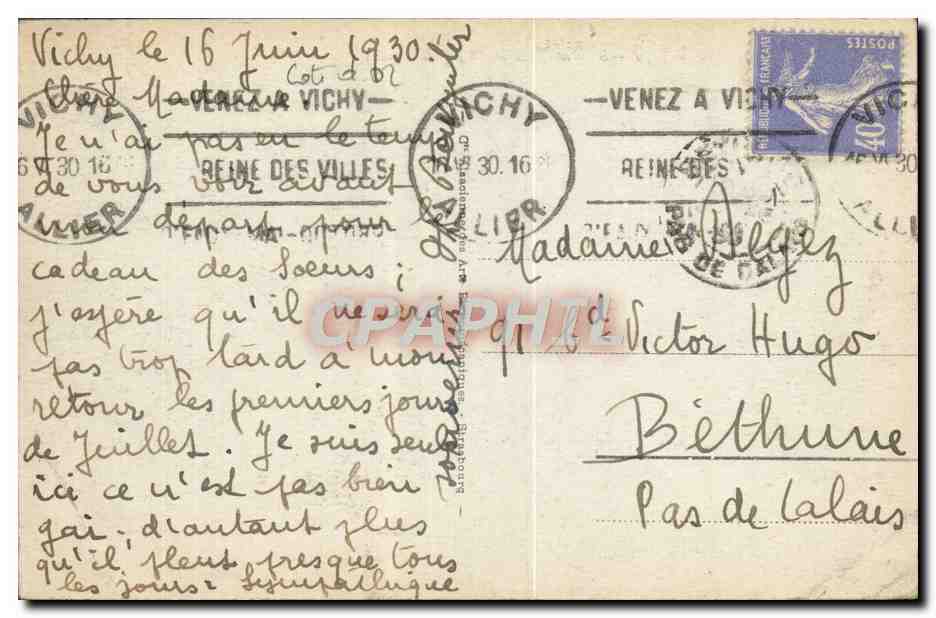 Vichy le 16 Juin 1930.
Cot d'or
Chère Madame
Je n'ai pas eu le temps
de vous voir avant
mon départ pour le
cadeau des Soeurs ;
j'espère qu'il ne sera
pas trop tard à mon
retour les premiers jours
de Juillet. Je suis seule
ici ce n'est pas bien
gai, d'autant plus
qu'il pleut presque tous
les jours. Sympathique
souvenir
VENEZ A VICHY
REINE DES VILLES
VICHY
ALLIER
30.16
VENEZ A VICHY
REINE DES
VICHY
ALLIER
REPUBLIQUE FRANÇAISE
POSTES
40
PAS DE CALAIS
Madame
91 Bd Victor Hugo
Béthune
Pas de Calais
Strasbourg
CPAPHIL